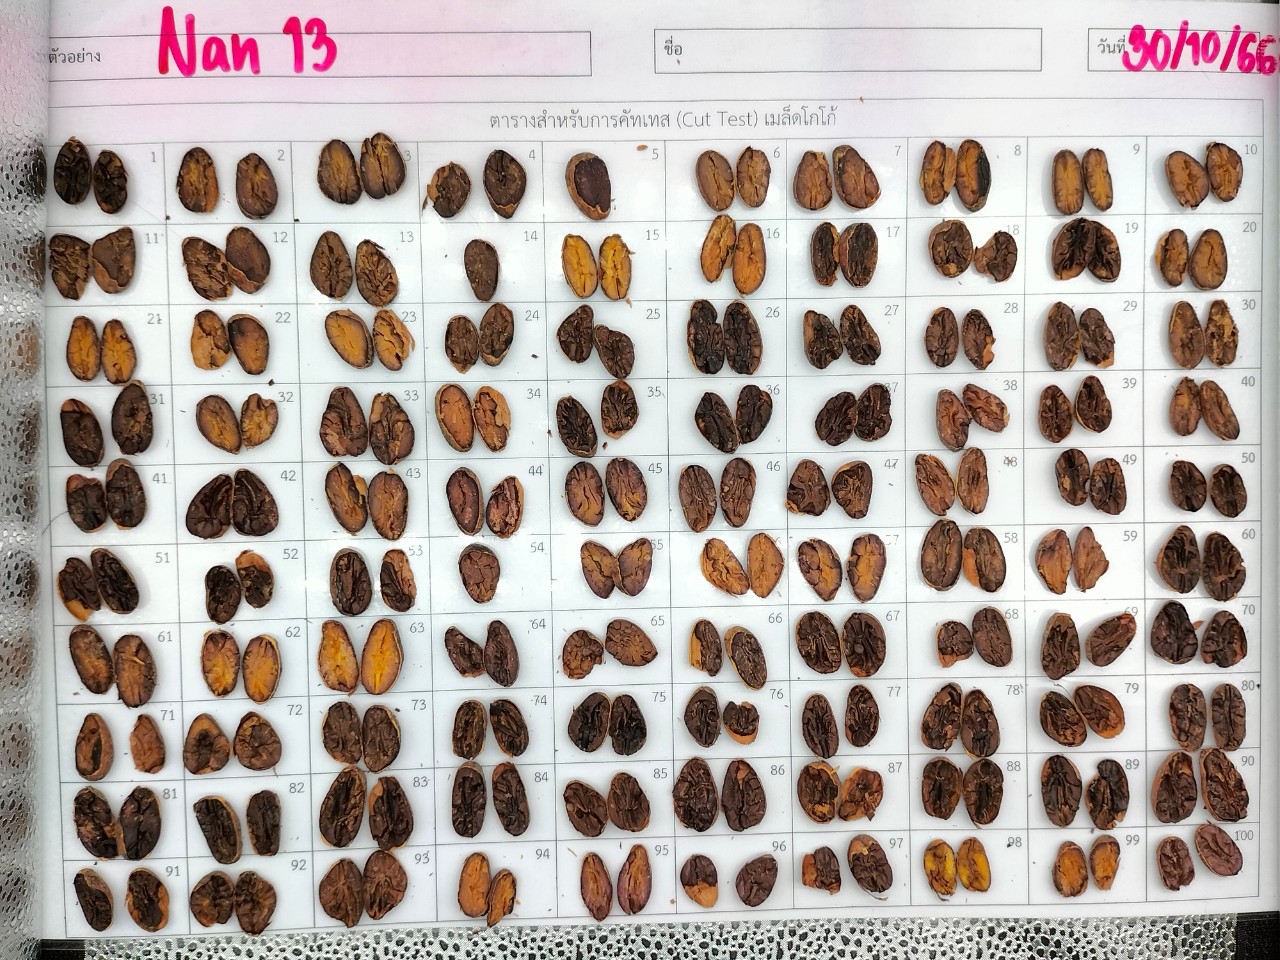 ตัวอย่าง Nan 13 ชื่อ วันที่ 30/10/66
ตารางสำหรับการคัทเทส (Cut Test) เมล็ดโกโก้
1 2 3 4 5 6 7 8 9 10
11 12 13 14 15 16 17 18 19 20
21 22 23 24 25 26 27 28 29 30
31 32 33 34 35 36 37 38 39 40
41 42 43 44 45 46 47 48 49 50
51 52 53 54 55 56 57 58 59 60
61 62 63 64 65 66 67 68 69 70
71 72 73 74 75 76 77 78 79 80
81 82 83 84 85 86 87 88 89 90
91 92 93 94 95 96 97 98 99 100